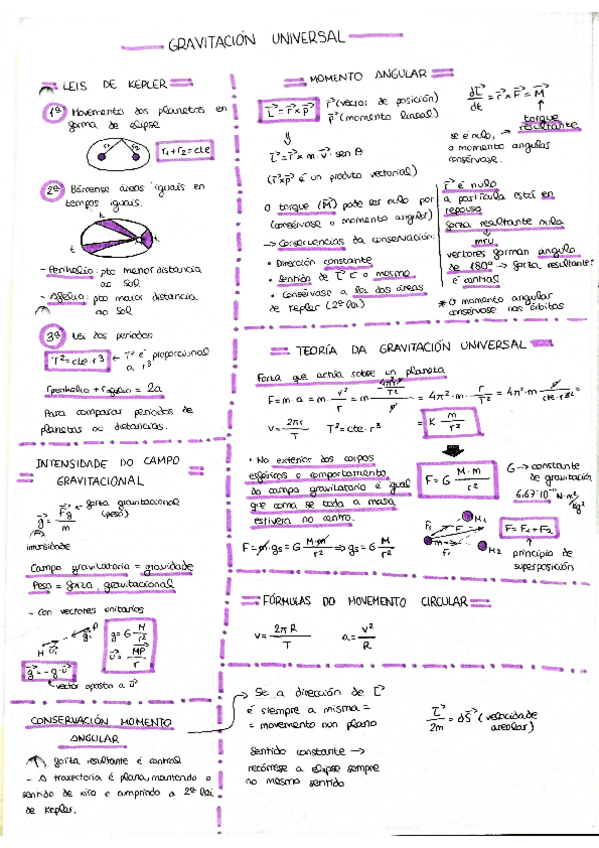 GRAVITACIÓN UNIVERSAL
LEIS DE KEPLER
1ª Movemento dos planetas en
forma de elipse
r1 r2
r1+r2=cte
2ª Bárrense áreas iguais en
tempos iguais.
t
t
- Perihelio: pto menor distancia
ao Sol
- Afelio: pto maior distancia
ao Sol
3ª Lei dos períodos
T²=cte·r³ ← T² é proporcional
a r³
rperihelio + rafelio = 2a
Para comparar períodos de
planetas ou distancias.
INTENSIDADE DO CAMPO
GRAVITACIONAL
g = Fg / m ← forza gravitacional
(peso)
intensidade
Campo gravitatorio = gravidade
Peso = forza gravitacional
- Con vectores unitarios
M u g P
g = G M/r²
u = MP/r
g = -g·u
vector oposto a u
CONSERVACIÓN MOMENTO
ANGULAR
forza resultante é central
- A traxectoria é plana, mantendo o
sentido de xiro e cumprindo a 2ª lei
de Kepler.
MOMENTO ANGULAR
L = r x p
r (vector de posición)
p (momento lineal)
⇓
L = r x m · v · sen θ
(r x p é un produto vectorial)
dL/dt = r x F = M
torque
resultante
se é nulo, →
o momento angular
consérvase.
O torque (M) pode ser nulo por
(consérvase o momento angular)
→ Consecuencias da conservación:
• Dirección constante
• Sentido de L é o mesmo
• Consérvase a lei das áreas
de Kepler (2ª lei)
r é nulo
a partícula está en
repouso
forza resultante nula
mru
vectores forman ángulo
de 180º → forza resultante
é central
* O momento angular
consérvase nas órbitas
TEORÍA DA GRAVITACIÓN UNIVERSAL
Forza que actúa sobre un planeta
F = m·a = m · v²/r = m 4π²r²/T² / r = 4π²·m · r/T² = 4π²·m r/cte·r³ =
v = 2πr/T T² = cte·r³ = K m/r²
• No exterior dos corpos
esféricos o comportamento
do campo gravitatorio é igual
que como se toda a masa
estivera no centro.
F = G M·m/r²
G → constante
de gravitación
6.67·10⁻¹¹ N·m²/kg²
F = m·gs = G M·m/r² ⇒ gs = G M/r²
M1
F2 F
m F1 M2
F = F1 + F2
principio de
superposición
FÓRMULAS DO MOVEMENTO CIRCULAR
v = 2πR/T a = v²/R
Se a dirección de L
é siempre a misma =
= movemento nun plano
Sentido constante →
recórrese a elipse sempre
no mesmo sentido
L/2m = dS (velocidade
areolar)